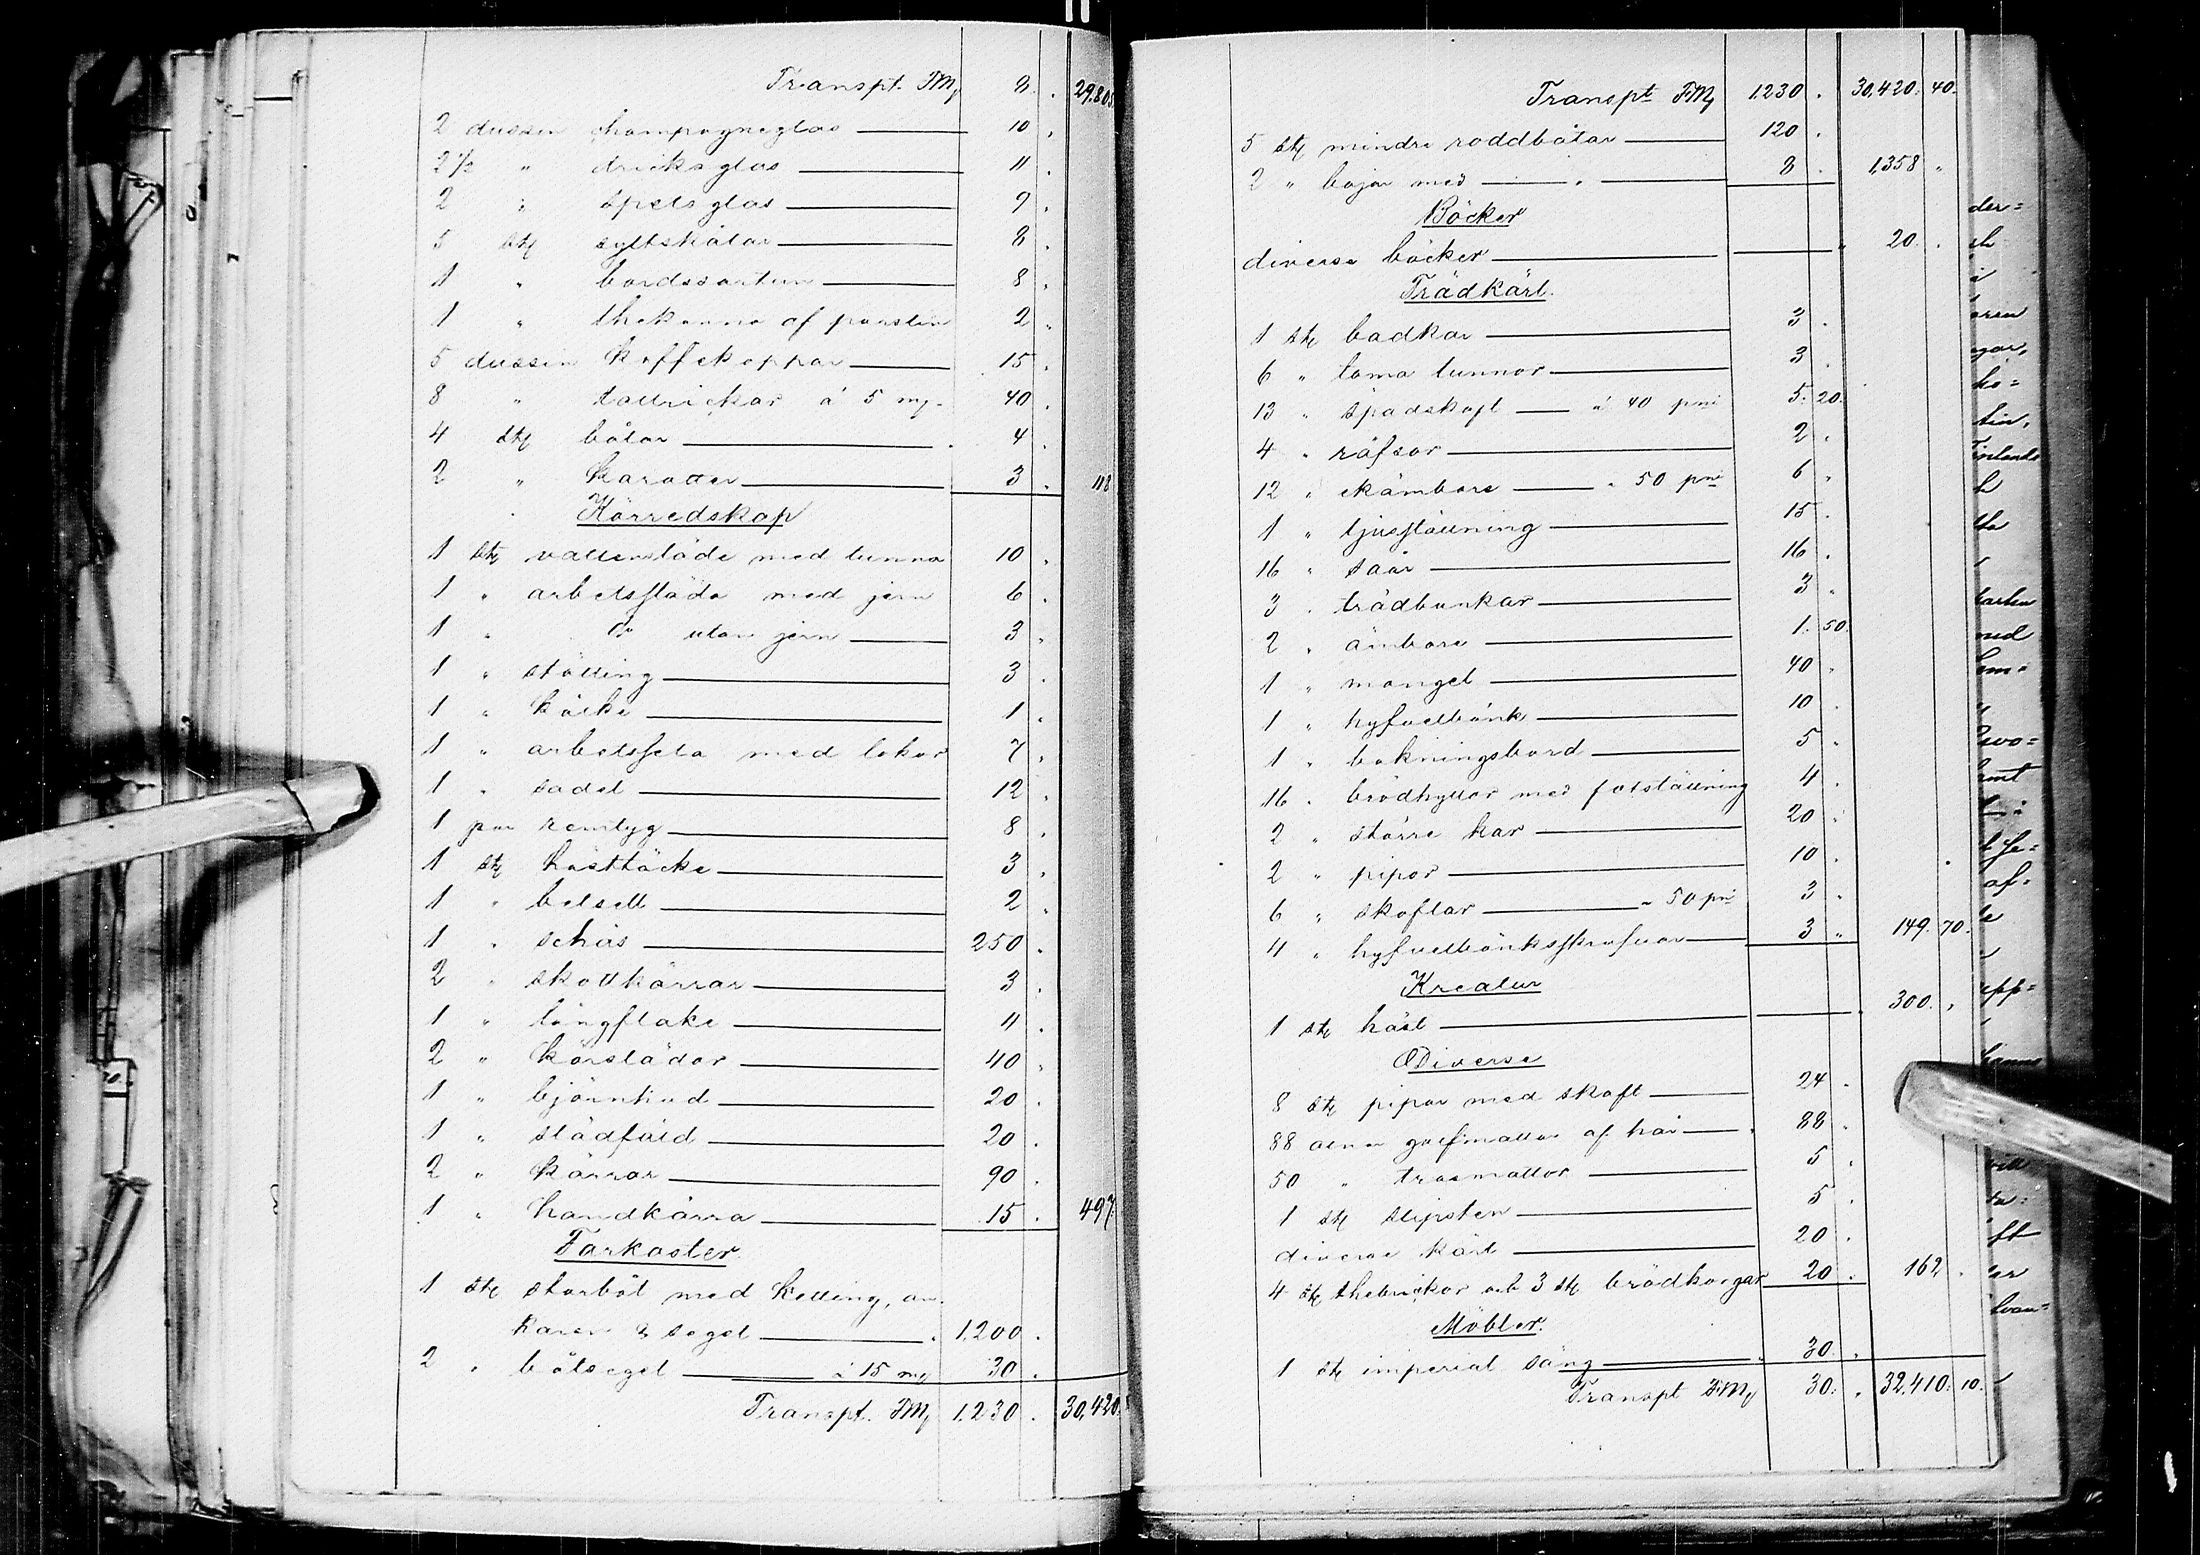 Transpt. FM, 8. 29.805
2 dussin champagneglas 10.
2 1/2 " dricksglas 11.
2 " spetsglas 9.
5 stk syltskålar 8.
1 " bordssurtun 8.
1 " thekanna af porslin 2.
5 dussin kaffekoppar 15.
8 " tallrickar á 5 mk 40.
4 stk bålar 4.
2 " karaffer 3. 118
Körredskap
1 stk vattensläde med tunna 10.
1 " arbetssläde med jern 6.
1 " do utan jern 3.
1 " ställing 3.
1 " kälke 1.
1 " arbetssela med lokor 7.
1 " sadel 12.
1 par remtyg 8.
1 stk hästtäcke 3.
1 " betsell 2.
1 " schäs 250.
2 " skottkärrar 3.
1 " långflake 4.
2 " körslädor 40.
1 " björnhud 20.
1 " slädfäld 20.
2 " kärror 90.
1 " handkärra 15. 497
Farkoster.
1 stk storbåt med ketting, an-
karen & segel 1,200.
2 " båtsegel á 15 mk 30.
Transpt. FM, 1.230. 30,420.
Transpt FM, 1230. 30,420. 40.
5 stk mindre roddbåtar 120.
2 " bojar med " 8. 1,358 "
Böcker
diverse böcker 20.
Trädkärl.
1 stk badkar 3.
6 " toma tunnor 3.
13 " spadskaft á 40 pni 5. 20.
4 " räfsor 2.
12 " skämbare " 50 pni 6.
1 " ljusställning 15.
16 " såar 16.
3 " trädbunkar 3.
2 " ämbare 1. 50.
1 " mangel 40.
1 " hyfvelbänk 10.
1 " bakningsbord 5.
16 " brödhyllor med fotställning 4.
2 " större kar 20.
2 " pipor 10.
6 " skoflar " 50 pni 3.
4 " hyfvelbänksskrufvar 3. 149. 70.
Kreatur
1 stk häst 300.
Diverse
8 stk pipor med skaft 24.
88 alnar golfmattor af hår 88.
50 " trasmattor 5.
1 stk slipsten 5.
diverse kärl 20.
4 stk thebrickor och 3 stk brödkorgar 20. 162.
Möbler.
1 stk imperial säng 30.
Transpt FM, 30. 32,410. 10.